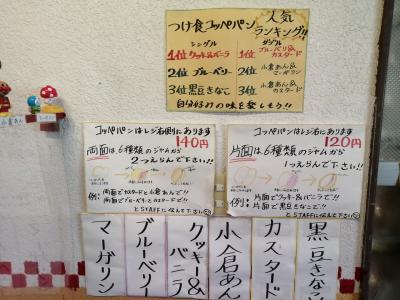 つけ食コッペパン
人気
ランキング!!
シングル
ダブル
1位 クッキー&バニラ
1位 ブルーベリー& カスタード
2位 ブルーベリー
2位 小倉あん& マーガリン
3位 黒豆きなこ
3位 小倉あん& カスタード
自分好みの味を楽しもう!!
コッペパンはレジ右側にあります
140円
両面は6種類のジャムから
2つえらんで下さい!!
例:両面でカスタードと小倉あんで!!
両面でブルーベリーとカスタードで!!
とSTAFFに伝えて下さい
コッペパンはレジ右にあります
120円
片面は6種類のジャムから
1つえらんで下さい!!
例:片面でクッキー&バニラで!!
片面で黒豆きなこで!!
とSTAFFに伝えて下さい
マーガリン
ブルーベリー
クッキー&バニラ
小倉あん
カスタード
黒豆きなこ
小倉あん